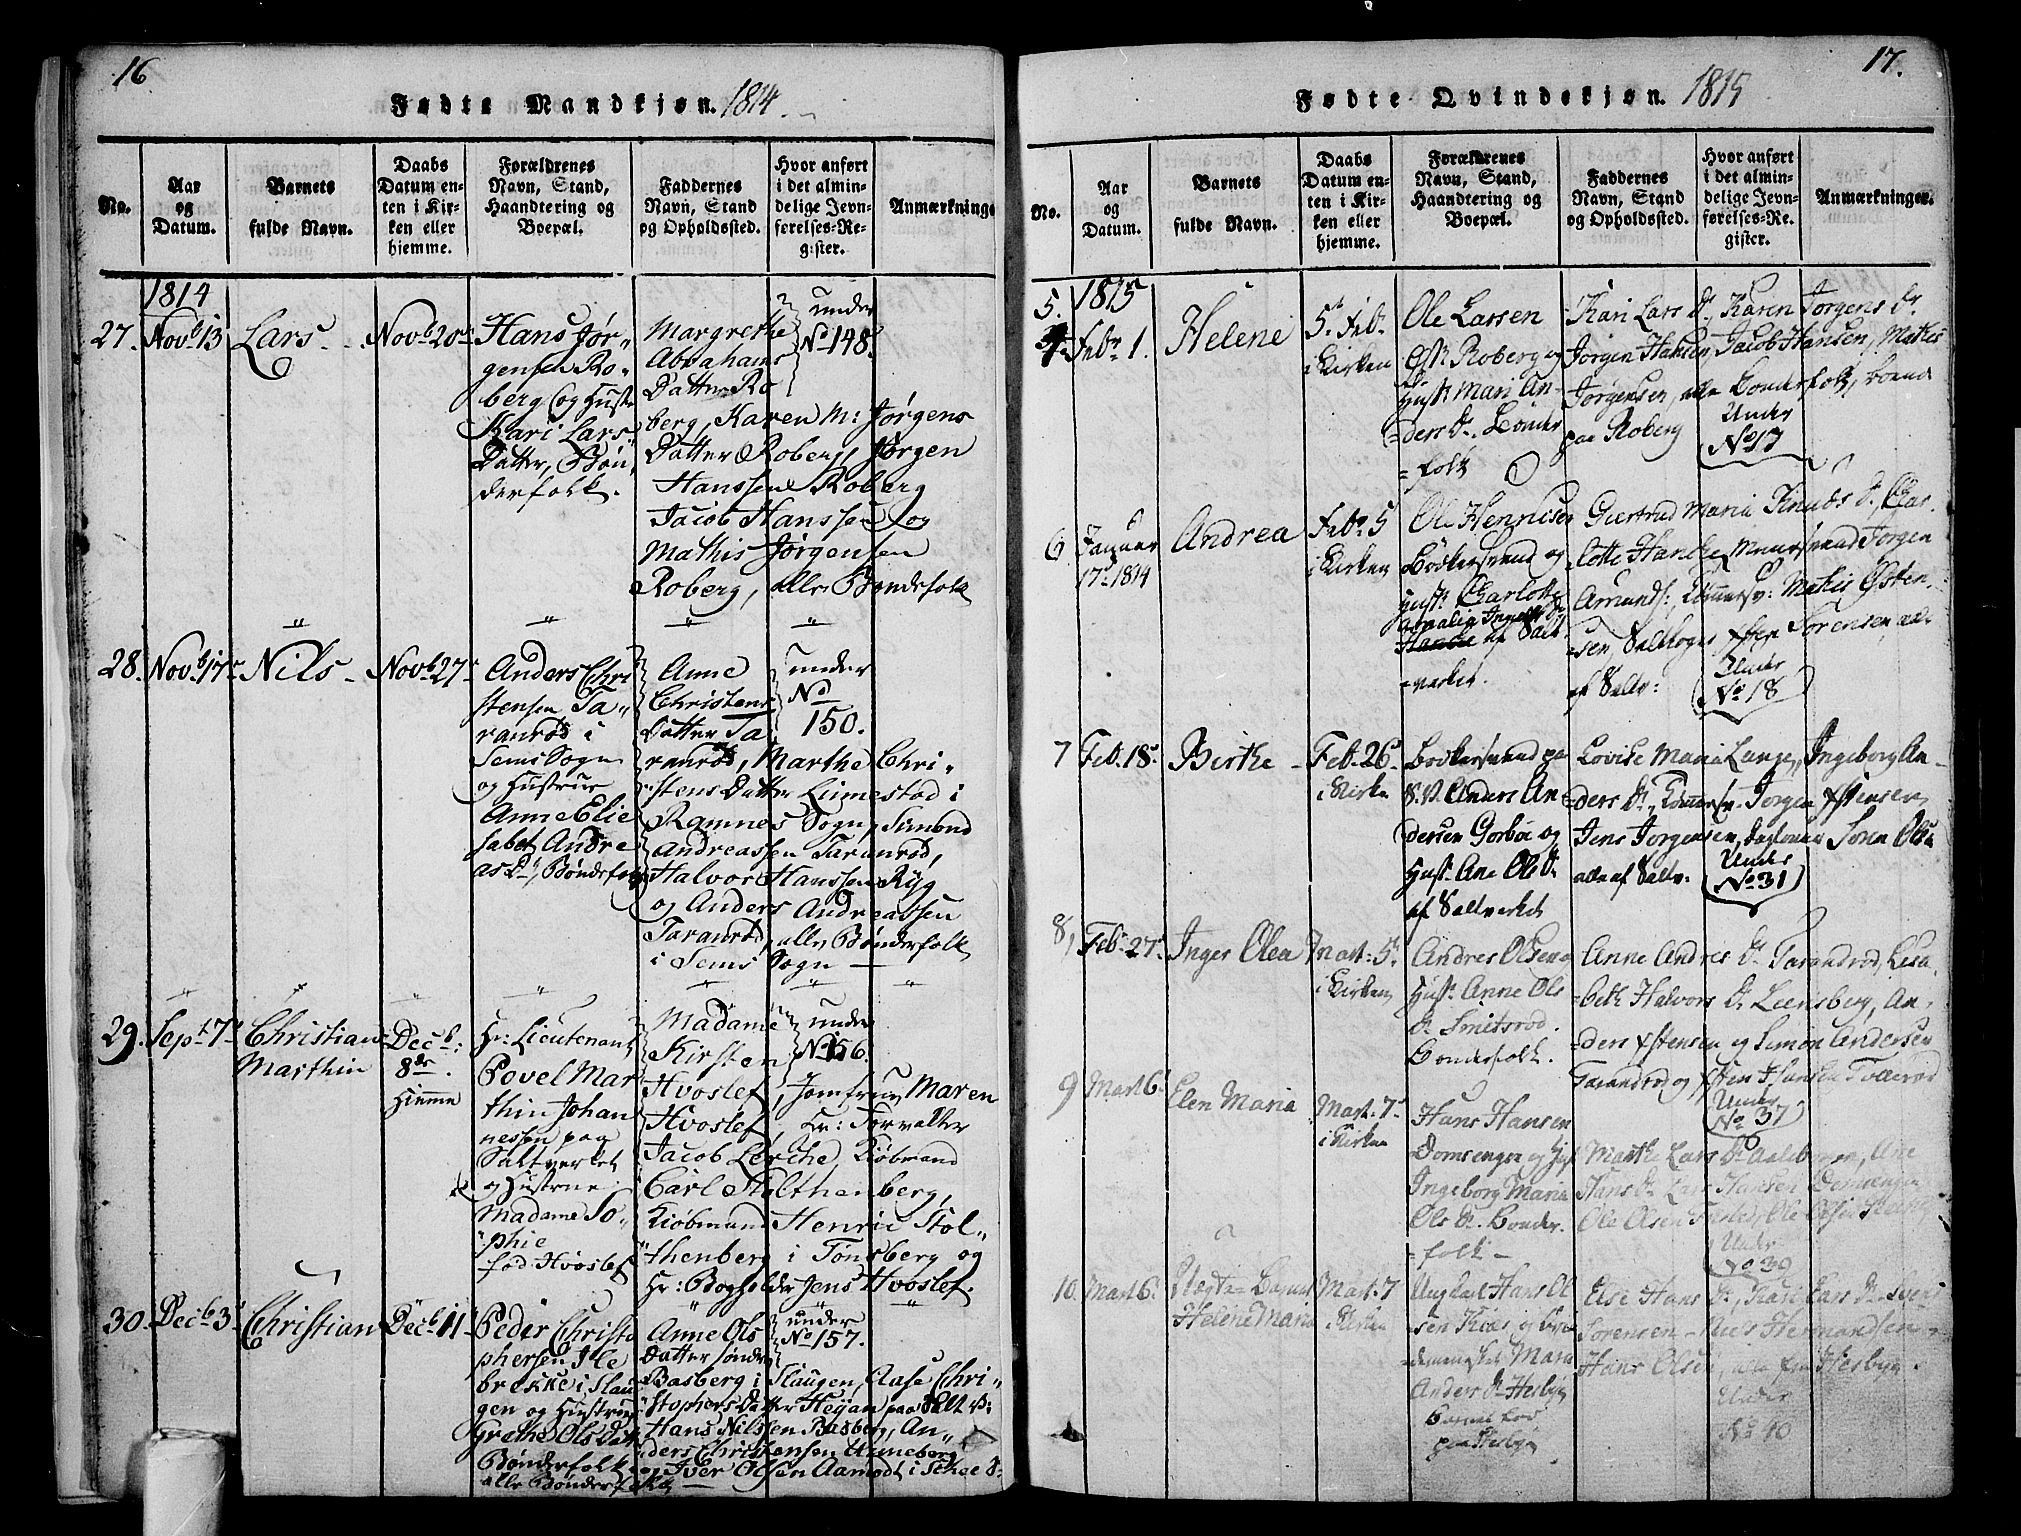 16
Fødte Mandkjøn. 1814.
No.
Aar
og
Datum.
Barnets
fulde Navn.
Daabs
Datum en-
ten i Kir-
ken eller
hjemme.
Forældrenes
Navn, Stand,
Haandtering og
Boepæl.
Faddernes
Navn, Stand
og Opholdssted.
Hvor anført
i det almin-
delige Jevn-
førelses-Re-
gister.
Anmærkninge
1814
27.
Novb 13
Lars
Novb 20de
Hans Jør-
gensen Ro-
berg og Hustr
Kari Lars
Datter, Bøn
derfolk.
Margrethe
Abrahams
Datter Ro
berg, Karen M: Jørgens
Datter Roberg, Jørgen
Hanssen Roberg
Jacob Hanssen og
Mathis Jørgensen
Roberg, alle Bøndefolk
under
No 148.
28.
Novb 17
Nils
Novb 27
Anders Chri
stensen Ta-
ranrød i
Sems Sogn
og Hustrue
Anne Elie
sabet Andre
as Dr, Bøndefolk
Anne
Christens
Datter Ta
ranrød, Marthe Chri-
stens Datter Limestad i
Ramnes Sogn, Simond
Andreassen Taranrød,
Halvor Hanssen Ryg
og Anders Andreassen
Taranrød, alle Bønderfolk
i Sems Sogn
under
No
150.
29.
Sept 7
Christian
Marthin
Decb:
8de.
Hiemme
Hr: Lieutenant
Povel Mar
thin Johan
nessen paa
Saltverket
og Hustrue
Madame So-
phie
fød Hvoslef
Madame
Kirsten
Hvoslef, Jomfrue Maren
Hvoslef, Hr: Forvalter
Jacob Lerche Kiøbmand
Carl Stolthenberg,
Kiøbmand Henric Stol-
thenberg i Tønsberg og
Hr: Bogholder Jens Hvoslef.
under
No 156.
30.
Decb 3
Christian
Decb 11
Peder Christo
phersen Ile
brekke i Slau
gen og Hustrue
Grethe Ols Datter
Bønderfolk
Anne Ols
Datter Sønder
Basberg i Slaugen, Aase Chri-
stophers Datter Heÿan paa Salt v:
Hans Nilssen Basberg, An-
ders Christensen Unneberg
og Iver Olsen Aamodt i Schee S:
alle Bønderfolk
under
No 157.
17.
Fødte Qvindekjøn. 1815
No.
Aar
og
Datum.
Barnets
fulde Navn.
Daabs
Datum en-
ten i Kir-
ken eller
hjemme.
Forældrenes
Navn, Stand,
Haandtering og
Boepæl.
Faddernes
Navn, Stand
og Opholdssted.
Hvor anført
i det almin-
delige Jevn-
førelses-Re-
gister.
Anmærkninger.
5.
1815
Febr 1.
Helene
5 Feb.
i Kirken
Ole Larsen
Roberg og
Hust: Mari An-
ders Dr. Bønder
folk
Kari Lars Dr, Karen Jørgens Dr
Jørgen Hansen, Jacob Hansen, Mathis
Jørgensen, alle Bønderfolk, boende
paa Roberg
Under
No 17
6
Januar
17 1814
Andrea
Feb 5
i Kirken
Ole Henricsen
og
Hust: Charlotte
Amalia
af Salt-
verket.
Giertrud Maria Knuds Dr, Char-
lotte Hancke, Jørgen
Amunds: Mathis Østen-
sen, Sørensen, alle
af Saltv:
Under
No 18
7
Feb. 18
Birthe
Feb. 26
i Kirken
paa
S.V. Anders An
dersen Gorboe og
Hust: Ane Ols Dr
af Saltverket
Lovise Maria Lange, Ingeborg An-
ders Dr, Jørgen
Jens Jørgensen, Sørn Olsen
alle af Saltv:
Under
No 31
8,
Feb. 27
Inger Olea
Mart: 5
i Kirken
Andres Olsen og
Hust: Anne Ols
Dr Smitsrød.
Bønderfolk.
Anne Andres Dr Tarandrød, Lisa-
beth Halvors Dr Leensberg, An-
ders og Simon Andersen
Tarandrød og Hansen
Under
No 37
9
Mart 6
Elen Maria
Mart. 7
i Kirken
Hans Hansen
Domsengen og Hust
Ingeborg Maria
Ols Dr. Bønder-
folk
Marthe Lars Dr Ane
Hans Dr Lars Hansen
Ole Olsen Ole Olsen
Under
No 39
10.
Mart 6
Helene Maria
Mart. 7
i Kirken
Ungkarl Hans Ol
sen Kiær og
Maria
Anders Dr Hesbÿn
Barnet fød
paa Hesbÿn
Else Hans Dr, Kari Lars Dr
Sørensen Niels Hermandsen
Hans Olsen, alle fra Hesbyn.
Under
No 40